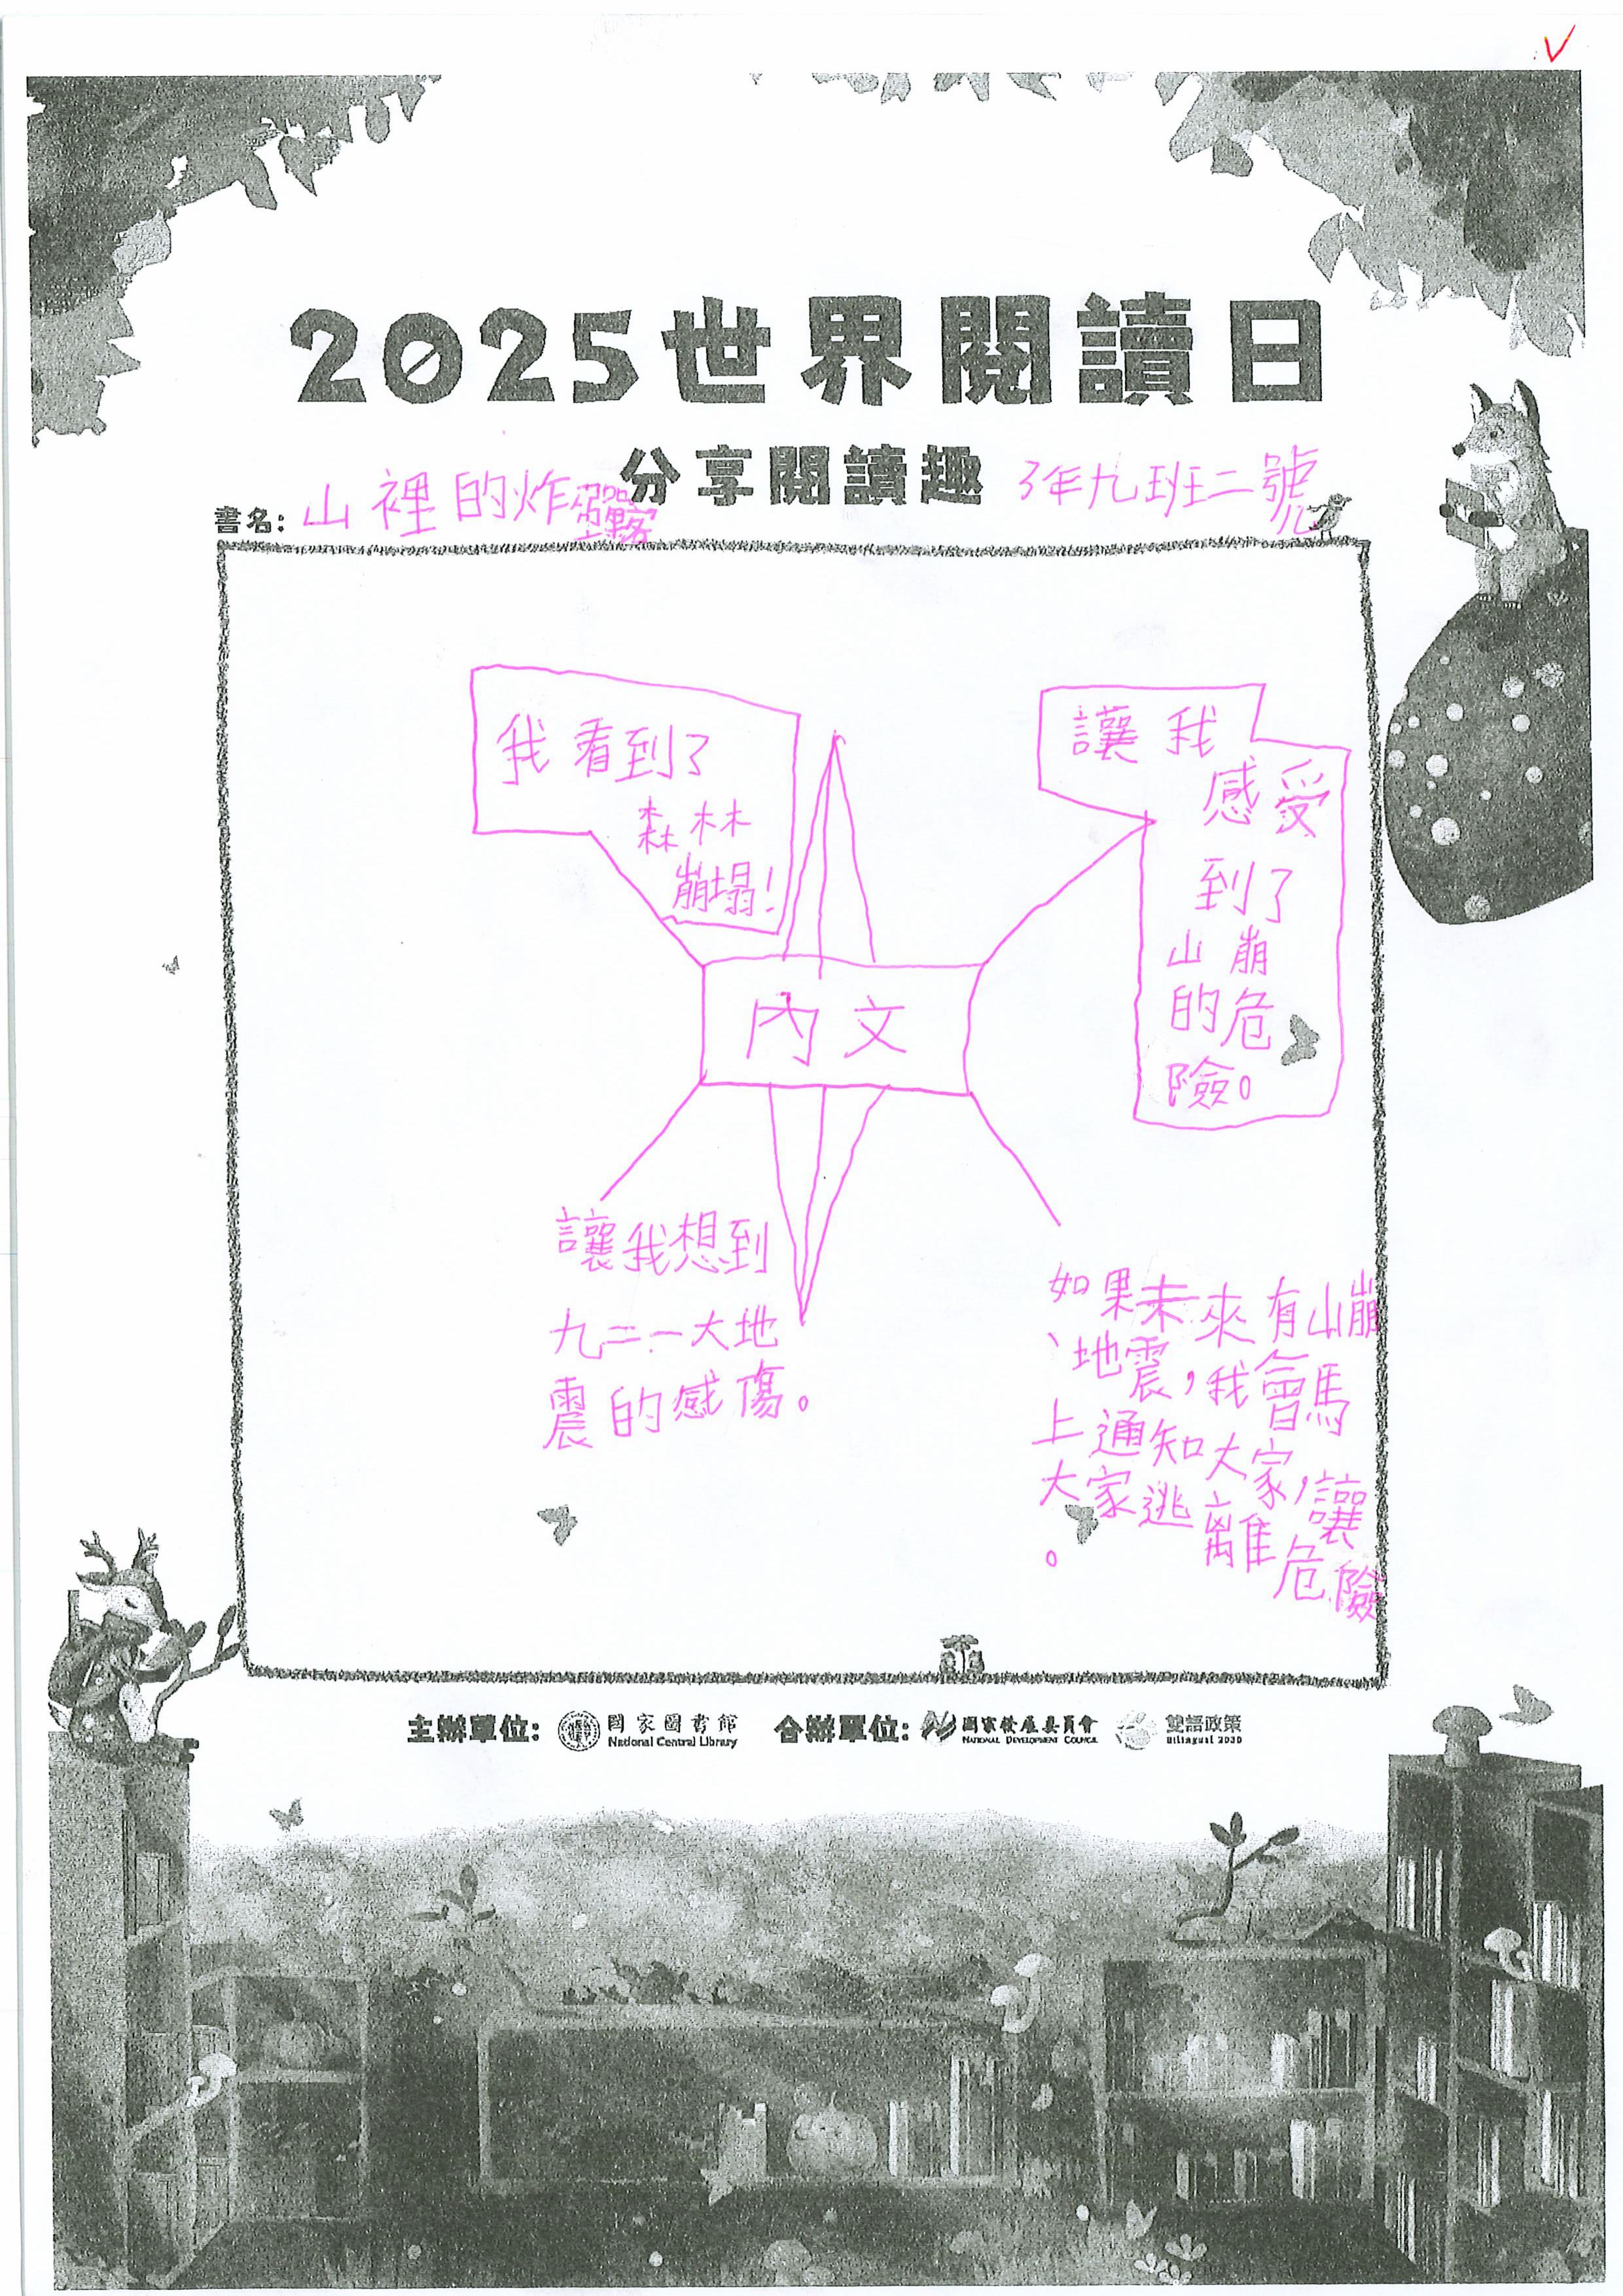 2025世界閱讀日
分享閱讀趣
書名：山裡的炸彈客
3年九班二號
我看到了
森林
崩塌！
讓我
感受
到了
山崩
的危
險。
內文
讓我想到
九二一大地
震的感傷。
如果未來有山崩
、地震，我會馬
上通知大家，讓
大家逃離危險
。
主辦單位：
國家圖書館
National Central Library
合辦單位：
國家發展委員會
NATIONAL DEVELOPMENT COUNCIL
雙語政策
Bilingual 2030